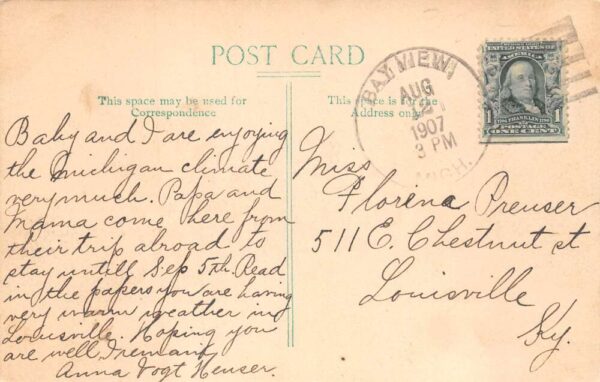 POST CARD
This space may be used for
Correspondence
This space is for the
Address only
BAY VIEW
AUG
1907
3 PM
MICH.
UNITED STATES OF
AMERICA
1
FRANKLIN
POSTAGE
ONE CENT
Baby and I are enjoying
the Michigan climate
very much. Papa and
Mama come here from
their trip abroad to
stay untill Sep 5th. Read
in the papers you are having
very warm weather in
Louisville. Hoping you
are well I remain
Anna Vogt Heuser.
Miss
Florena Preuser
511 E. Chestnut st
Louisville
Ky.